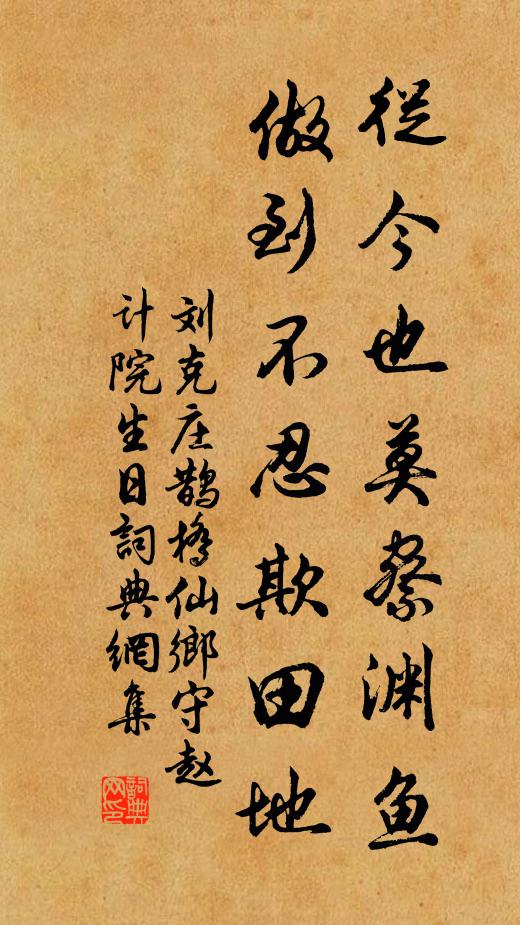 從今也莫察渊鱼
做到不忍欺田地
刘克庄鹊橋仙鄉守赵
计院生日詞典網集
詞典网印